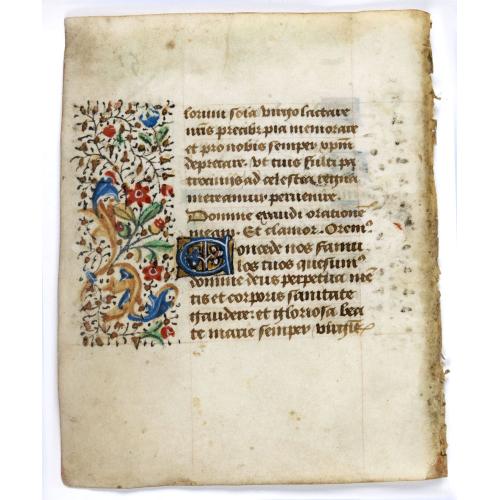 lorum sola virgo lactare
nris precibz pia memorare
et pro nobis semper xpm
deprecare. Vt tuis fulti pa
trociniis ad celestia regna
mereamur peruenire.
Domine exaudi oratione
meam. Et clamor. Orem9.
Concede nos famu
los tuos quesum9
domine deus perpetua me
tis et corporis sanitate
gaudere: et gloriosa bea
te marie semper virgis